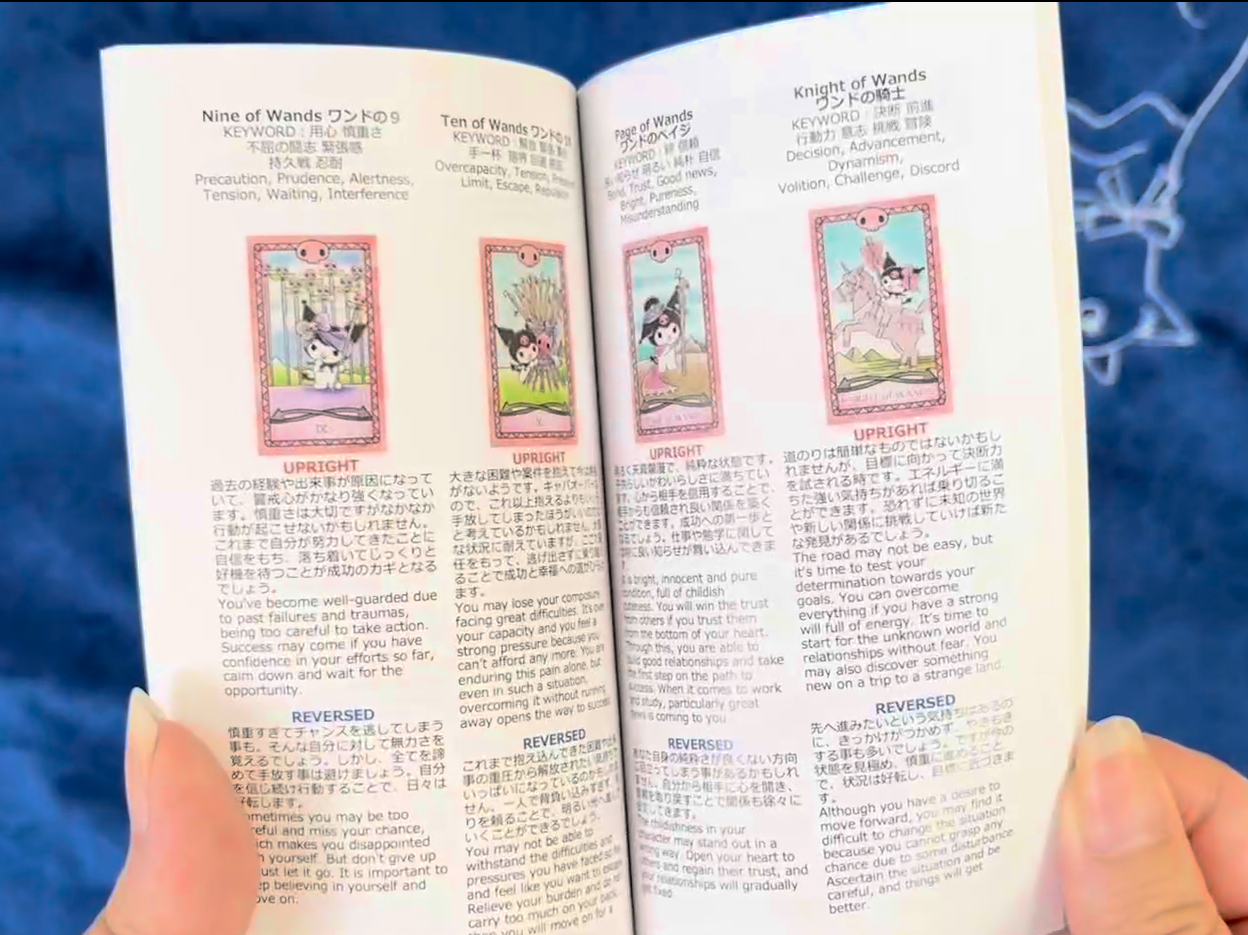 Nine of Wands ワンドの9
KEYWORD：用心 慎重さ
不屈の闘志 緊張感
持久戦 忍耐
Precaution, Prudence, Alertness,
Tension, Waiting, Interference
IX
UPRIGHT
過去の経験や出来事が原因になって
いて、警戒心がかなり強くなってい
ます。慎重さは大切ですがなかなか
行動が起こせないかもしれません。
これまで自分が努力してきたことに
自信をもち、落ち着いてじっくりと
好機を待つことが成功のカギとなる
でしょう。
You've become well-guarded due
to past failures and traumas,
being too careful to take action.
Success may come if you have
confidence in your efforts so far,
calm down and wait for the
opportunity.
REVERSED
慎重すぎてチャンスを逃してしまう
事も。そんな自分に対して無力さを
覚えるでしょう。しかし、全てを諦
めて手放す事は避けましょう。自分
を信じ続け行動することで、日々は
好転します。
ometimes you may be too
reful and miss your chance,
ich makes you disappointed
yourself. But don't give up
ust let it go. It is important to
p believing in yourself and
ove on.
Ten of Wands ワンドの
KEYWORD：
手一杯 限界
Overcapacity, Tension,
Limit, Escape, Repulsion
X
UPRIGHT
大きな困難や案件を抱えて
がないようです。キャパオーバー
ので、これ以上抱えるよりも
手放してしまったほうがいい
と考えているかもしれません。
な状況に耐えていますが、ここ
任をもって、逃げ出さずに乗り
ることで成功と幸福への道が
ます。
You may lose your composure
facing great difficulties. It's over
your capacity and you feel a
strong pressure because you
can't afford any more. You are
enduring this pain alone, but
even in such a situation,
overcoming it without running
away opens the way to success.
REVERSED
これまで抱え込んできた困難や
事の重圧から解放されたい気持ち
いっぱいになっているのかもし
せん。一人で背負い込みすぎず、
りを頼ることで、明るい方へ進
いくことができるでしょう。
You may not be able to
withstand the difficulties and
pressures you have faced so far
and feel like you want to escape.
Relieve your burden and do not
carry too much on your back,
then you will move on for a
Page of Wands
ワンドのペイジ
KEYWORD：絆 信頼
良い知らせ 明るい 純朴 自信
Bond, Trust, Good news,
Bright, Pureness,
Misunderstanding
UPRIGHT
明るく天真爛漫で、純粋な状態です。
子供らしいかわいらしさに満ちてい
ます。心から相手を信用することで、
相手からも信頼され良い関係を築く
ことができます。成功への第一歩と
なるでしょう。仕事や勉学に関して
特に良い知らせが舞い込んできま
す。
is bright, innocent and pure
condition, full of childish
cuteness. You will win the trust
from others if you trust them
from the bottom of your heart.
Through this, you are able to
build good relationships and take
the first step on the path to
success. When it comes to work
and study, particularly great
news is coming to you.
REVERSED
あなた自身の純粋さが良くない方向
に目立ってしまう事があるかもしれ
ません。自分から相手に心を開き、
信頼を取り戻すことで関係も徐々に
してきます。
The childishness in your
character may stand out in a
wrong way. Open your heart to
others and regain their trust, and
your relationships will gradually
get fixed.
Knight of Wands
ワンドの騎士
KEYWORD：決断 前進
行動力 意志 挑戦 冒険
Decision, Advancement,
Dynamism,
Volition, Challenge, Discord
KNIGHT of WANDS
UPRIGHT
道のりは簡単なものではないかもし
れませんが、目標に向かって決断力
を試される時です。エネルギーに満
ちた強い気持ちがあれば乗り切るこ
とができます。恐れずに未知の世界
や新しい関係に挑戦していけば新た
な発見があるでしょう。
The road may not be easy, but
it's time to test your
determination towards your
goals. You can overcome
everything if you have a strong
will full of energy. It's time to
start for the unknown world and
relationships without fear. You
may also discover something
new on a trip to a strange land.
REVERSED
先へ進みたいという気持ちはあるの
に、きっかけがつかめず、やきもき
する事も多いでしょう。ですが今の
状態を見極め、慎重に進めること
で、状況は好転し、目標に近づきま
す。
Although you have a desire to
move forward, you may find it
difficult to change the situation
because you cannot grasp any
chance due to some disturbance.
Ascertain the situation and be
careful, and things will get
better.